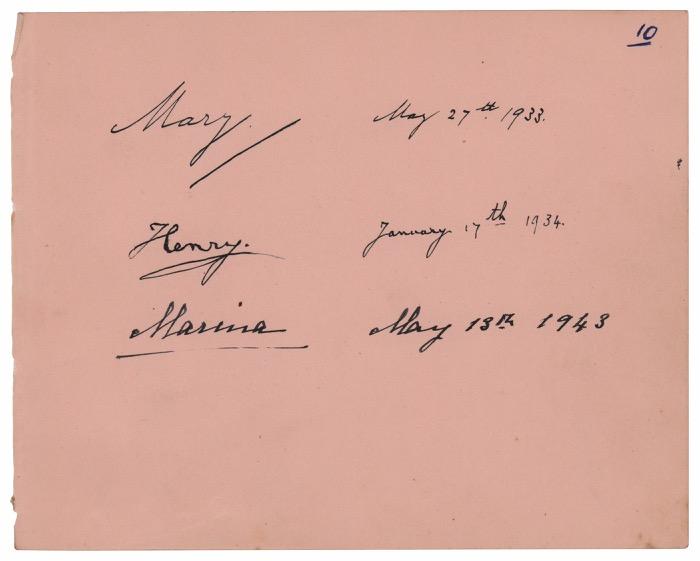 10
Mary. May 27th 1933.
Henry. January 17th 1934.
Marina May 13th 1943